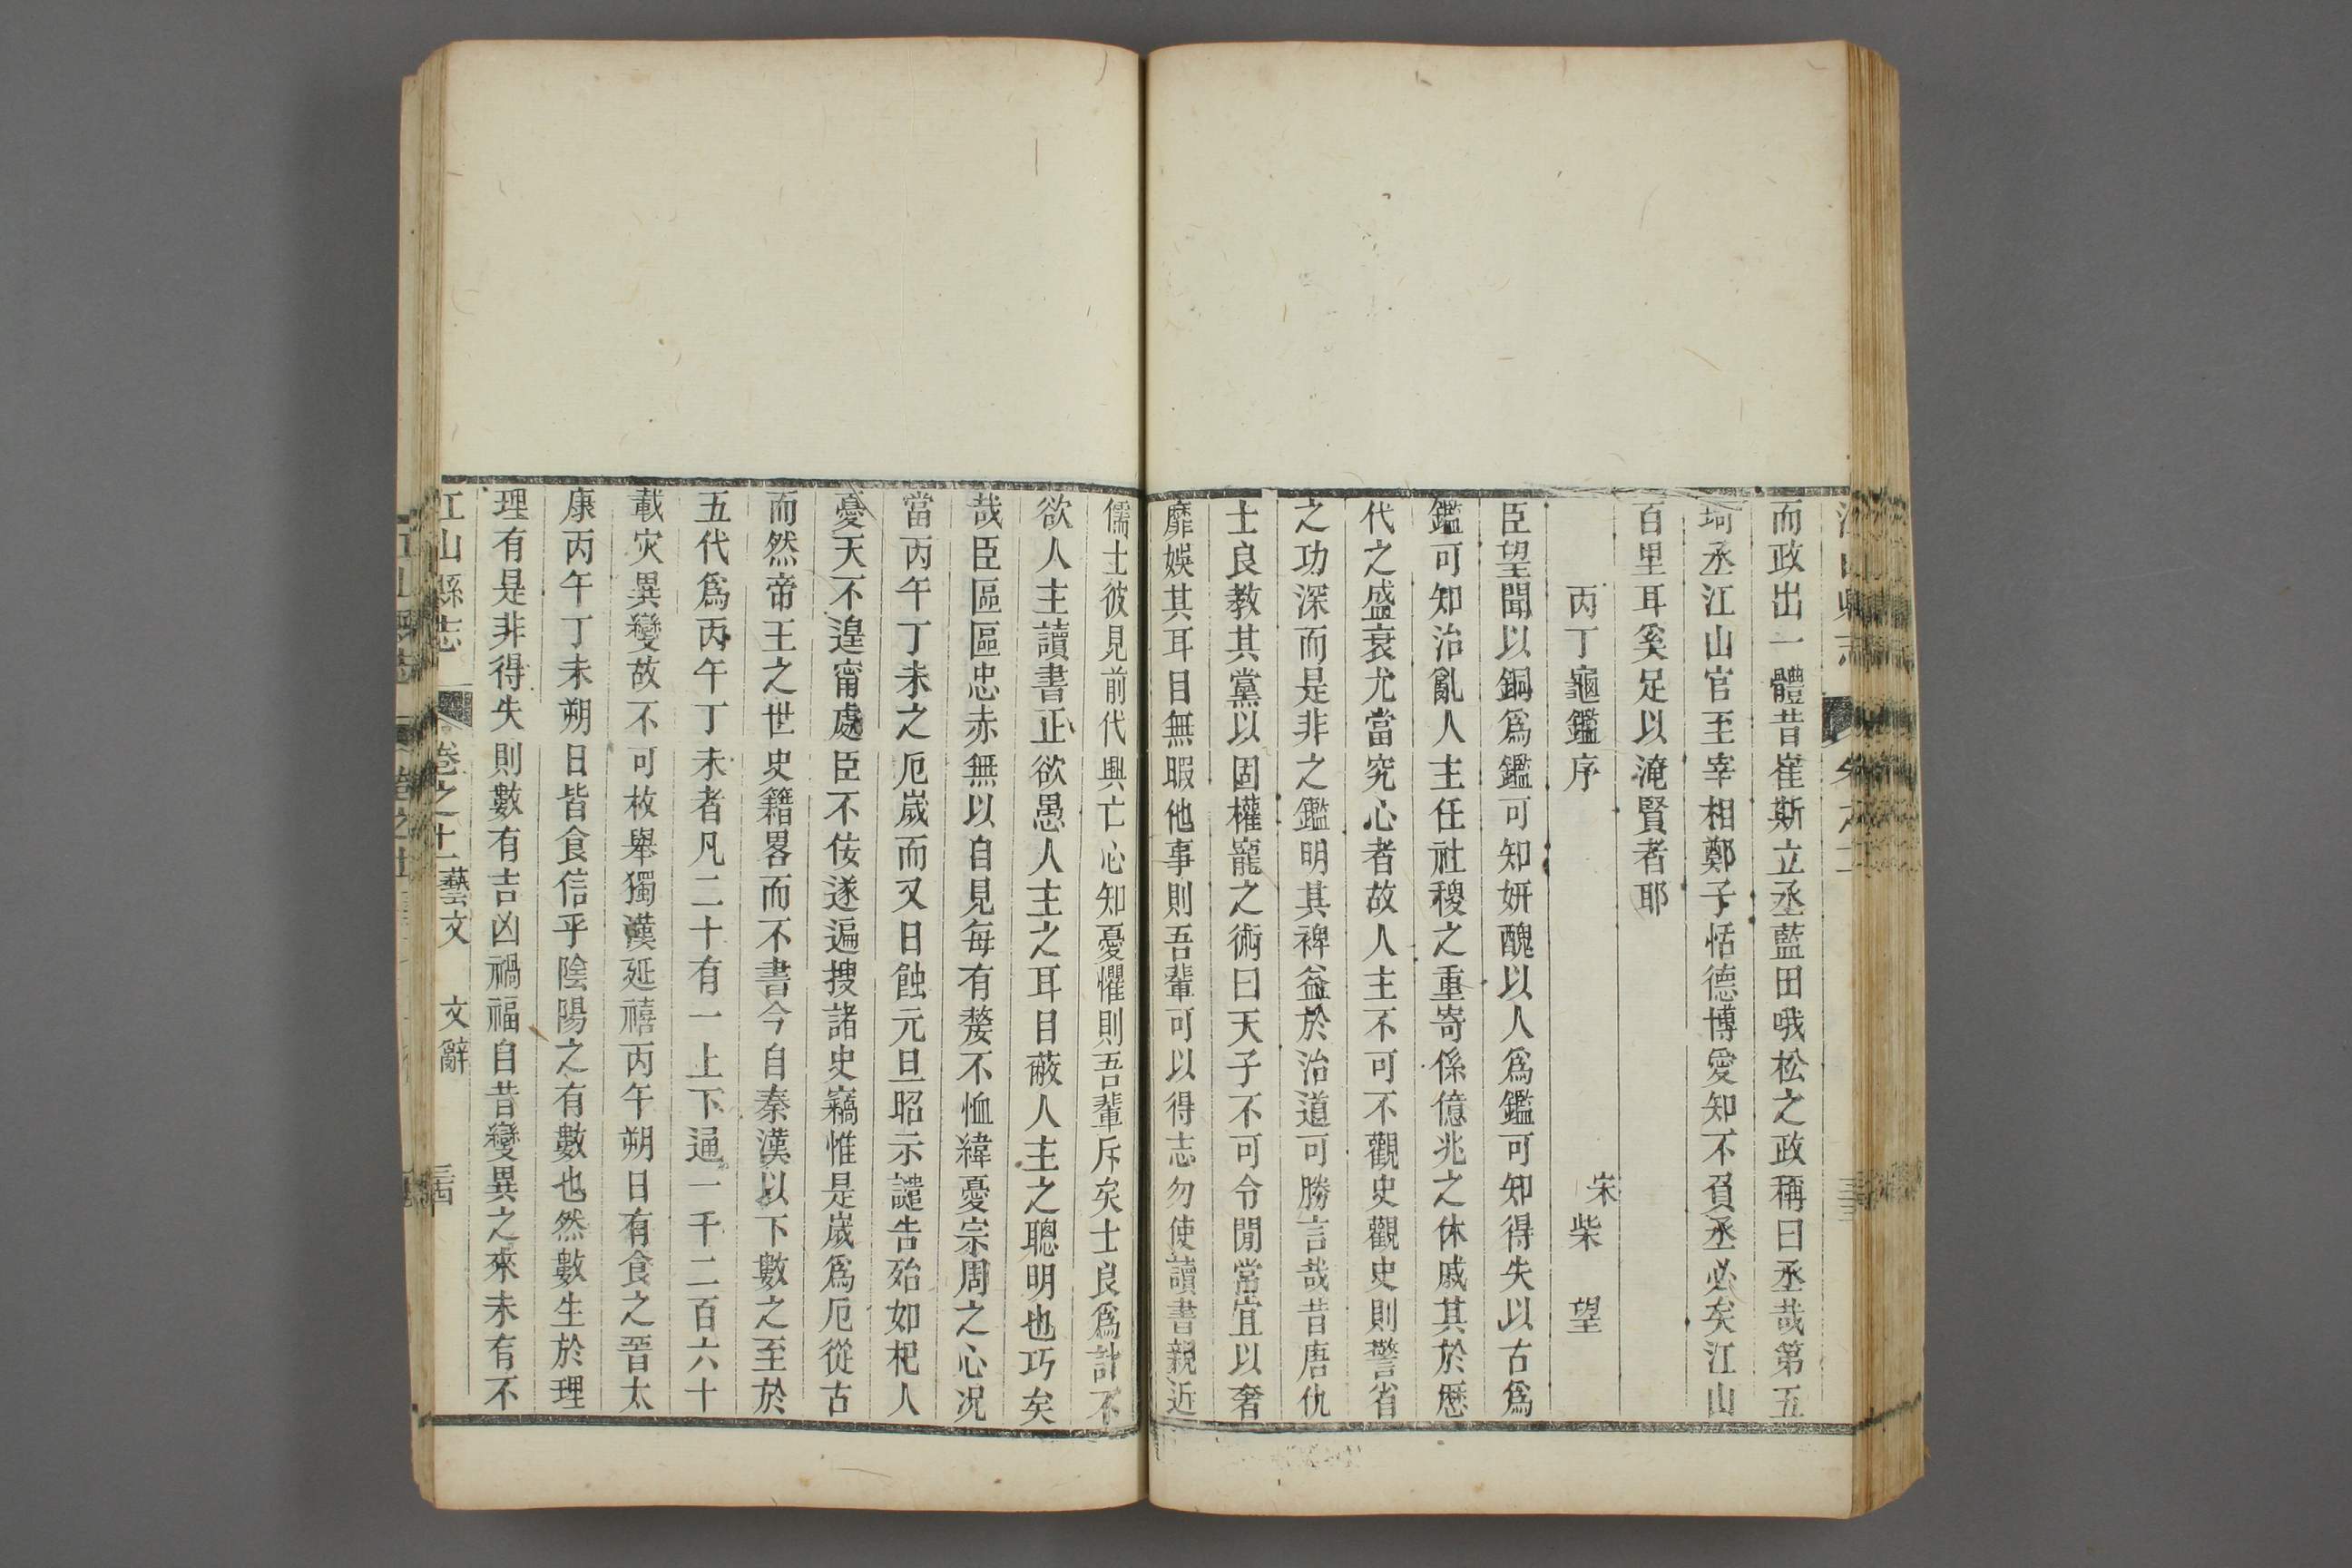 而政出一體昔崔斯立丞藍田哦松之政稱曰丞哉第五
琦丞江山官至宰相鄭子恬德博愛知不負丞必矣江山
百里耳奚足以淹賢者耶
丙丁龜鑑序　宋柴　望
臣望聞以銅爲鑑可知妍醜以人爲鑑可知得失以古爲
鑑可知治亂人主任社稷之重寄係億兆之休戚其於歷
代之盛衰尤當究心者故人主不可不觀史觀史則警省
之功深而是非之鑑明其裨益於治道可勝言哉昔唐仇
士良教其黨以固權寵之術曰天子不可令閒常宜以奢
靡娛其耳目無暇他事則吾輩可以得志勿使讀書親近
儒士彼見前代興亡心知憂懼則吾輩斥矣士良爲計不
欲人主讀書正欲愚人主之耳目蔽人主之聰明也巧矣
哉臣區區忠赤無以自見每有嫠不恤緯憂宗周之心况
當丙午丁未之厄歲而又日蝕元旦昭示譴告殆如杞人
憂天不遑甯處臣不佞遂遍搜諸史竊惟是歲爲厄從古
而然帝王之世史籍畧而不書今自秦漢以下數之至於
五代爲丙午丁未者凡二十有一上下通一千二百六十
載灾異變故不可枚舉獨漢延禧丙午朔日有食之晉太
康丙午丁未朔日皆食信乎陰陽之有數也然數生於理
理有是非得失則數有吉凶禍福自昔變異之來未有不
江山縣志　卷之十一藝文　文辭　三四